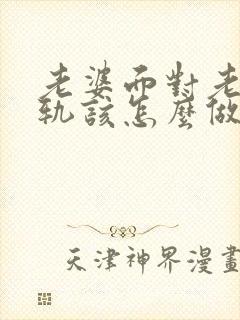 老婆面對老
軌該怎麼做
天津神界漫畫